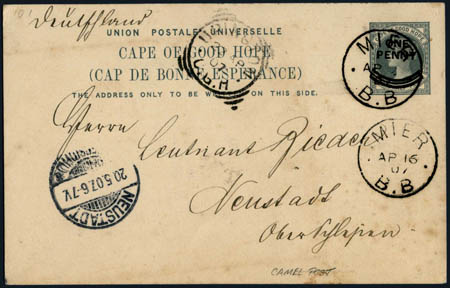 101
Deutschland
UNION POSTALE UNIVERSELLE
CAPE OF GOOD HOPE
(CAP DE BONNE ESPÉRANCE)
THE ADDRESS ONLY TO BE WRITTEN ON THIS SIDE.
ONE
PENNY
MIER
AP
B.B
AP
07
MIER
AP 16
07
B.B
Herrn
Leutnant Rieder
Neustadt
Oberschlesien
20.5.07.6-7V.
NEUSTADT
CAMEL POST